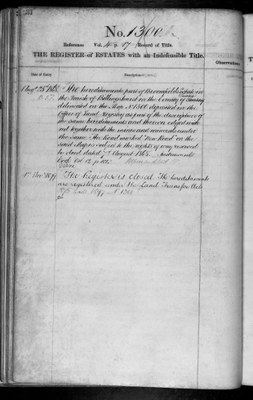 No. 1300
Reference Vol. 4 p. 17 Record of Title.
THE REGISTER of ESTATES with an Indefeasible Title.
Date of Entry.
Description
Observations
The hereditaments part of Broomfields Estate in
the Parish of Billingshurst in the County of
delineated on the Map No. 1300 deposited in the
Office of Land Registry as part of the description of
the same hereditaments and thereon edged with
red together with the mines and minerals under
the same. The Road marked on the
said Map is subject to the rights of way reserved
by deed dated August 1862
The Register is closed. The hereditaments
are registered under the Land Transfer Acts
1875 and 1897